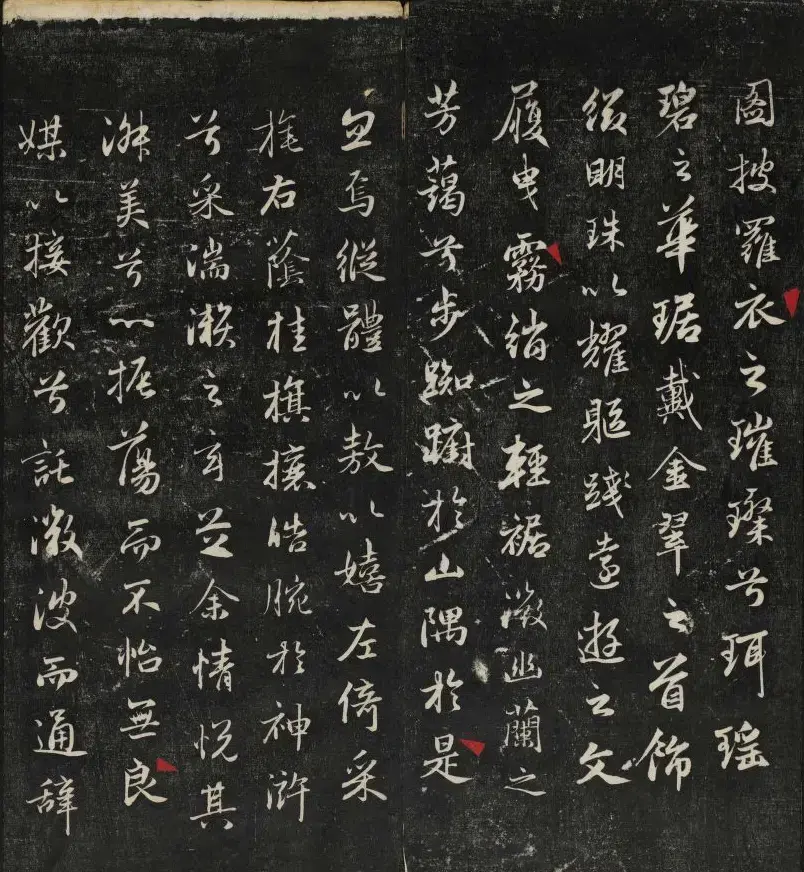 圖披羅衣之璀璨兮珥瑤
碧之華琚戴金翠之首飾
綴明珠以耀軀踐遠遊之文
履曳霧綃之輕裾微幽蘭之
芳藹兮步踟躕於山隅於是
忽焉縱體以敖以嬉左倚采
旄右蔭桂旗攘皓腕於神滸
兮采湍瀨之玄芝余情悅其
淑美兮心振蕩而不怡無良
媒以接歡兮託微波而通辭